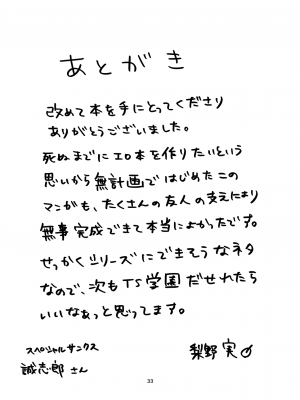 あとがき
改めて本を手にとってくださり
ありがとうございました。
死ぬまでにエロ本を作りたいという
思いから無計画ではじめたこの
マンガも、たくさんの友人の支えにより
無事完成できて本当によかったです。
せっかくシリーズにできそうなネタ
なので、次もTS学園だせれたら
いいなぁっと思ってます。
スペシャルサンクス
誠志郎さん
梨野実♂
33